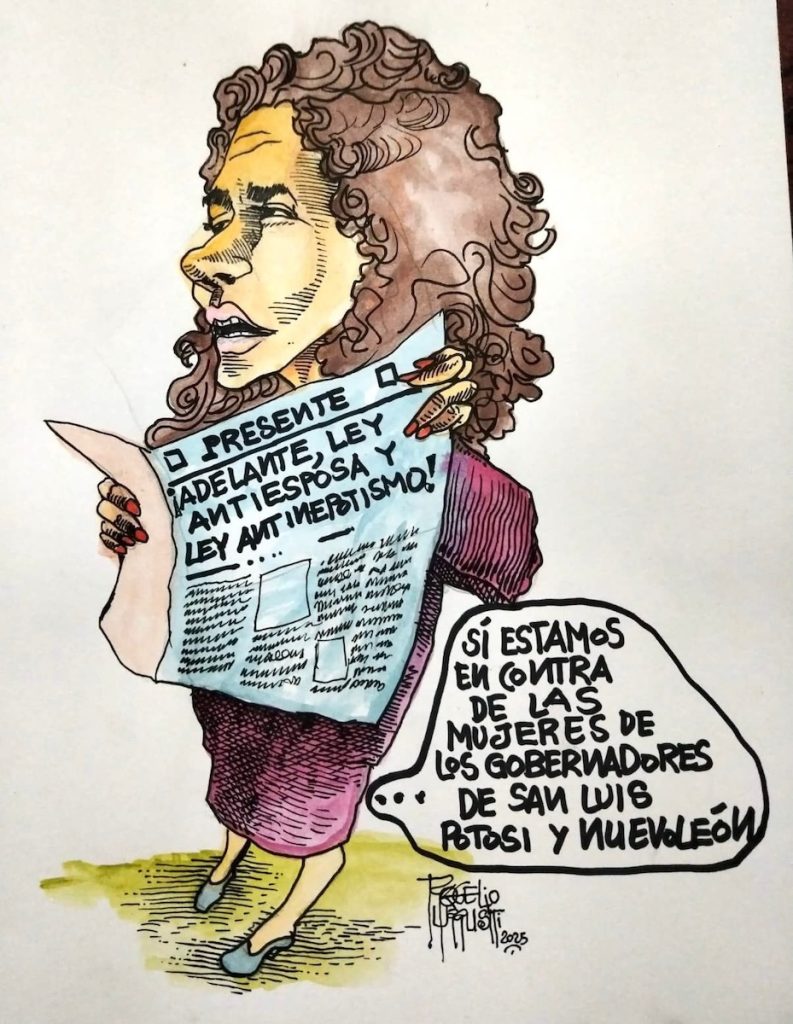 PRESENTE
¡ADELANTE, LEY
ANTIESPOSA Y
LEY ANTINEPOTISMO!
SÍ ESTAMOS
EN CONTRA
DE LAS
MUJERES DE
LOS GOBERNADORES
DE SAN LUIS
POTOSI Y NUEVOLEÓN
ROGELIO
2025